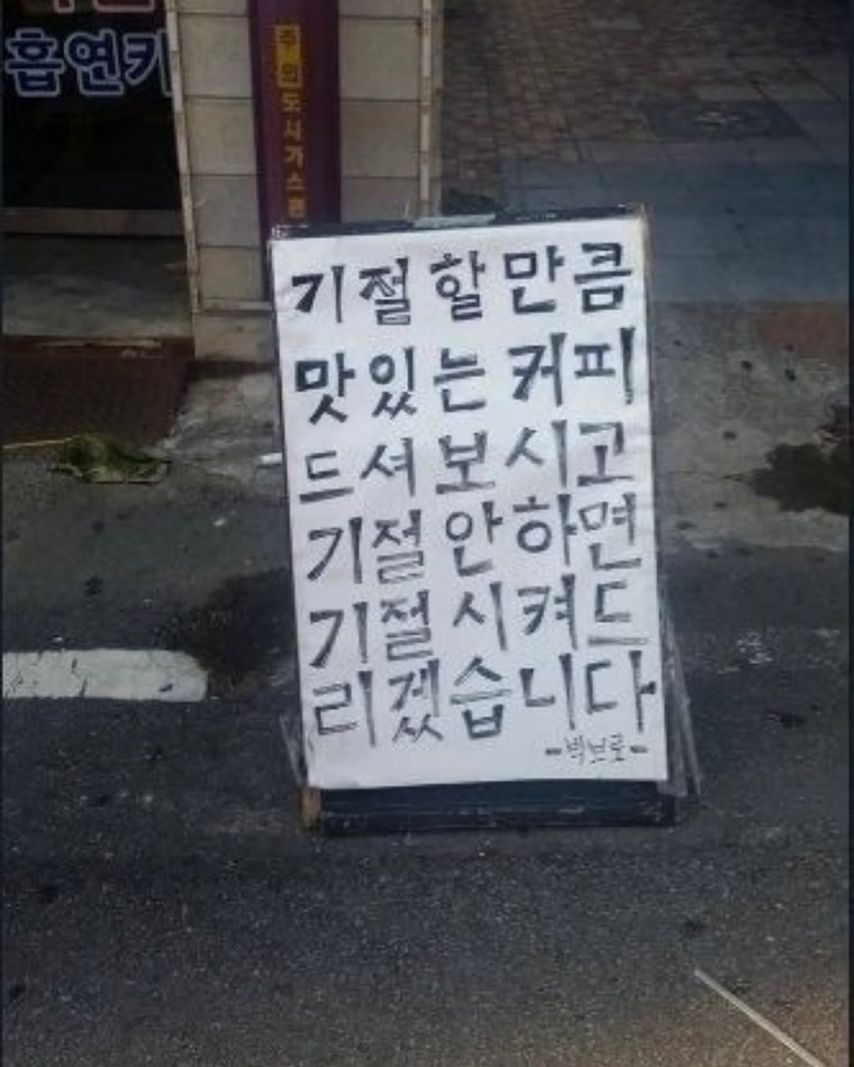 흡연카
주의도시가스관
기절할만큼
맛있는커피
드셔보시고
기절안하면
기절시켜드
리겠습니다
-빅브로-